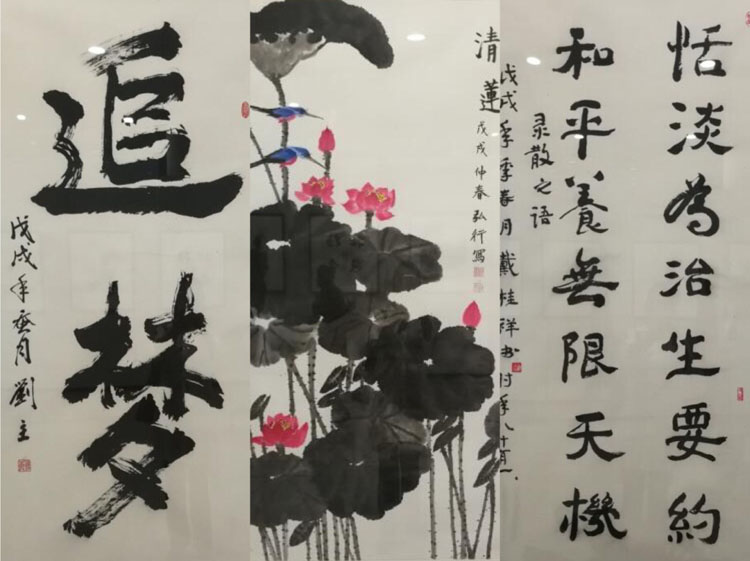 追梦
戊戌年月劉主
清蓮
戊戌仲春弘行寫
恬淡為治生要約
和平養無限天機
录散之语
戊戌年季春月戴桂祥书时年八十有一